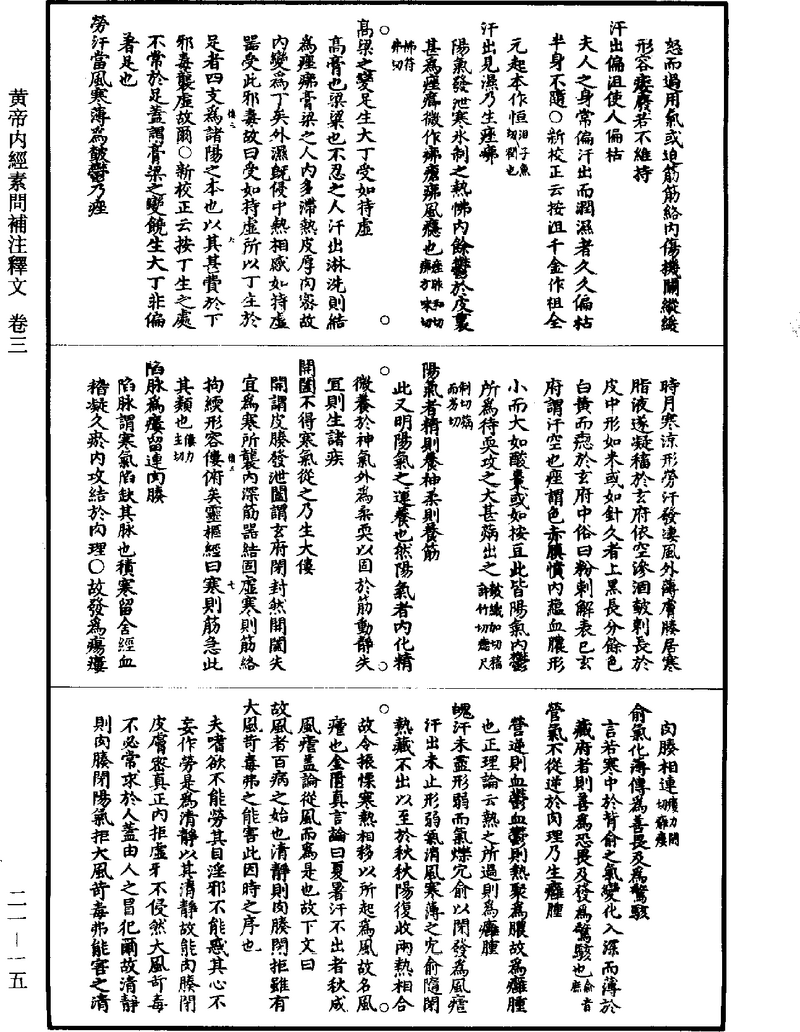 黄帝内經素問補注釋文 卷三
二一—一五
怒而過用氣或迫筋筋絡內傷機關縱緩
形容痿廢若不維持
汗出偏沮使人偏枯
夫人之身常偏汗出而潤濕者久久偏枯
半身不隨○新校正云按沮千金作祖全
元起本作恒
汗出見濕乃生痤疿
陽氣發泄寒水制之熱怫內餘鬱於皮裏
甚為痤癤微作疿瘡疿風癮也
高梁之變足生大丁受如持虛
高膏也梁粱也不忍之人汗出淋洗則結
為痤疿膏梁之人內多滯熱皮厚肉密故
內變為丁矣外濕旣侵中熱相感如持虛
器受此邪毒故曰受如持虛所以丁生於
足者四支為諸陽之本也以其甚費於下
邪毒襲虛故爾○新校正云按丁生之處
不常於足蓋謂膏梁之變饒生大丁非偏
著足也
勞汗當風寒薄為皶鬱乃痤
時月寒涼形勞汗發淒風外薄膚腠居寒
脂液遂凝稸於玄府依空滲涸皶刺長於
皮中形如米或如針久者上黑長分餘色
白黄而於玄府中俗曰粉刺解表已玄
府謂汗空也痤謂色赤䐜憤內蘊血膿形
小而大如酸棗或如按豆此皆陽氣內鬱
所為待耎攻之大甚焫出之
陽氣者精則養神柔則養筋
此又明陽氣之運養也然陽氣者內化精
微養於神氣外為柔耎以固於筋動靜失
宜則生諸疾
開闔不得寒氣從之乃生大僂
開謂皮腠發泄闔謂玄府閉封然開闔失
宜為寒所襲內深筋器結固虛寒則筋絡
拘緛形容僂俯矣靈樞經曰寒則筋急此
其類也
陷脉為瘻留連肉腠
陷脉謂寒氣陷缺其脉也積寒留舍經血
稽凝久瘀內攻結於肉理○故發為瘍瘻
肉腠相連
俞氣化薄傳為善畏及為驚駭
言若寒中於背俞之氣變化入深而薄於
藏府者則善為恐畏及發為驚駭也
營氣不從逆於肉理乃生癰腫
營逆則血鬱血鬱則熱聚為膿故為癰腫
也正理論云熱之所過則為癰腫
魄汗未盡形弱而氣爍穴俞以閉發為風瘧
汗出未止形弱氣消風寒薄之穴俞隨閉
熱藏不出以至於秋秋陽復收兩熱相合
故令振慄寒熱相移以所起為風故名風
瘧也金匱真言論曰夏暑汗不出者秋成
風瘧蓋論從風而為是也故下文曰
故風者百病之始也清靜則肉腠閉拒雖有
大風苛毒弗之能害此因時之序也
夫嗜欲不能勞其目淫邪不能惑其心不
妄作勞是為清靜以其清靜故能肉腠閉
皮膚密真正內拒虛邪不侵然大風苛毒
不必常求於人蓋由人之冒犯爾故清靜
則肉腠閉陽氣拒大風苛毒弗能害之清